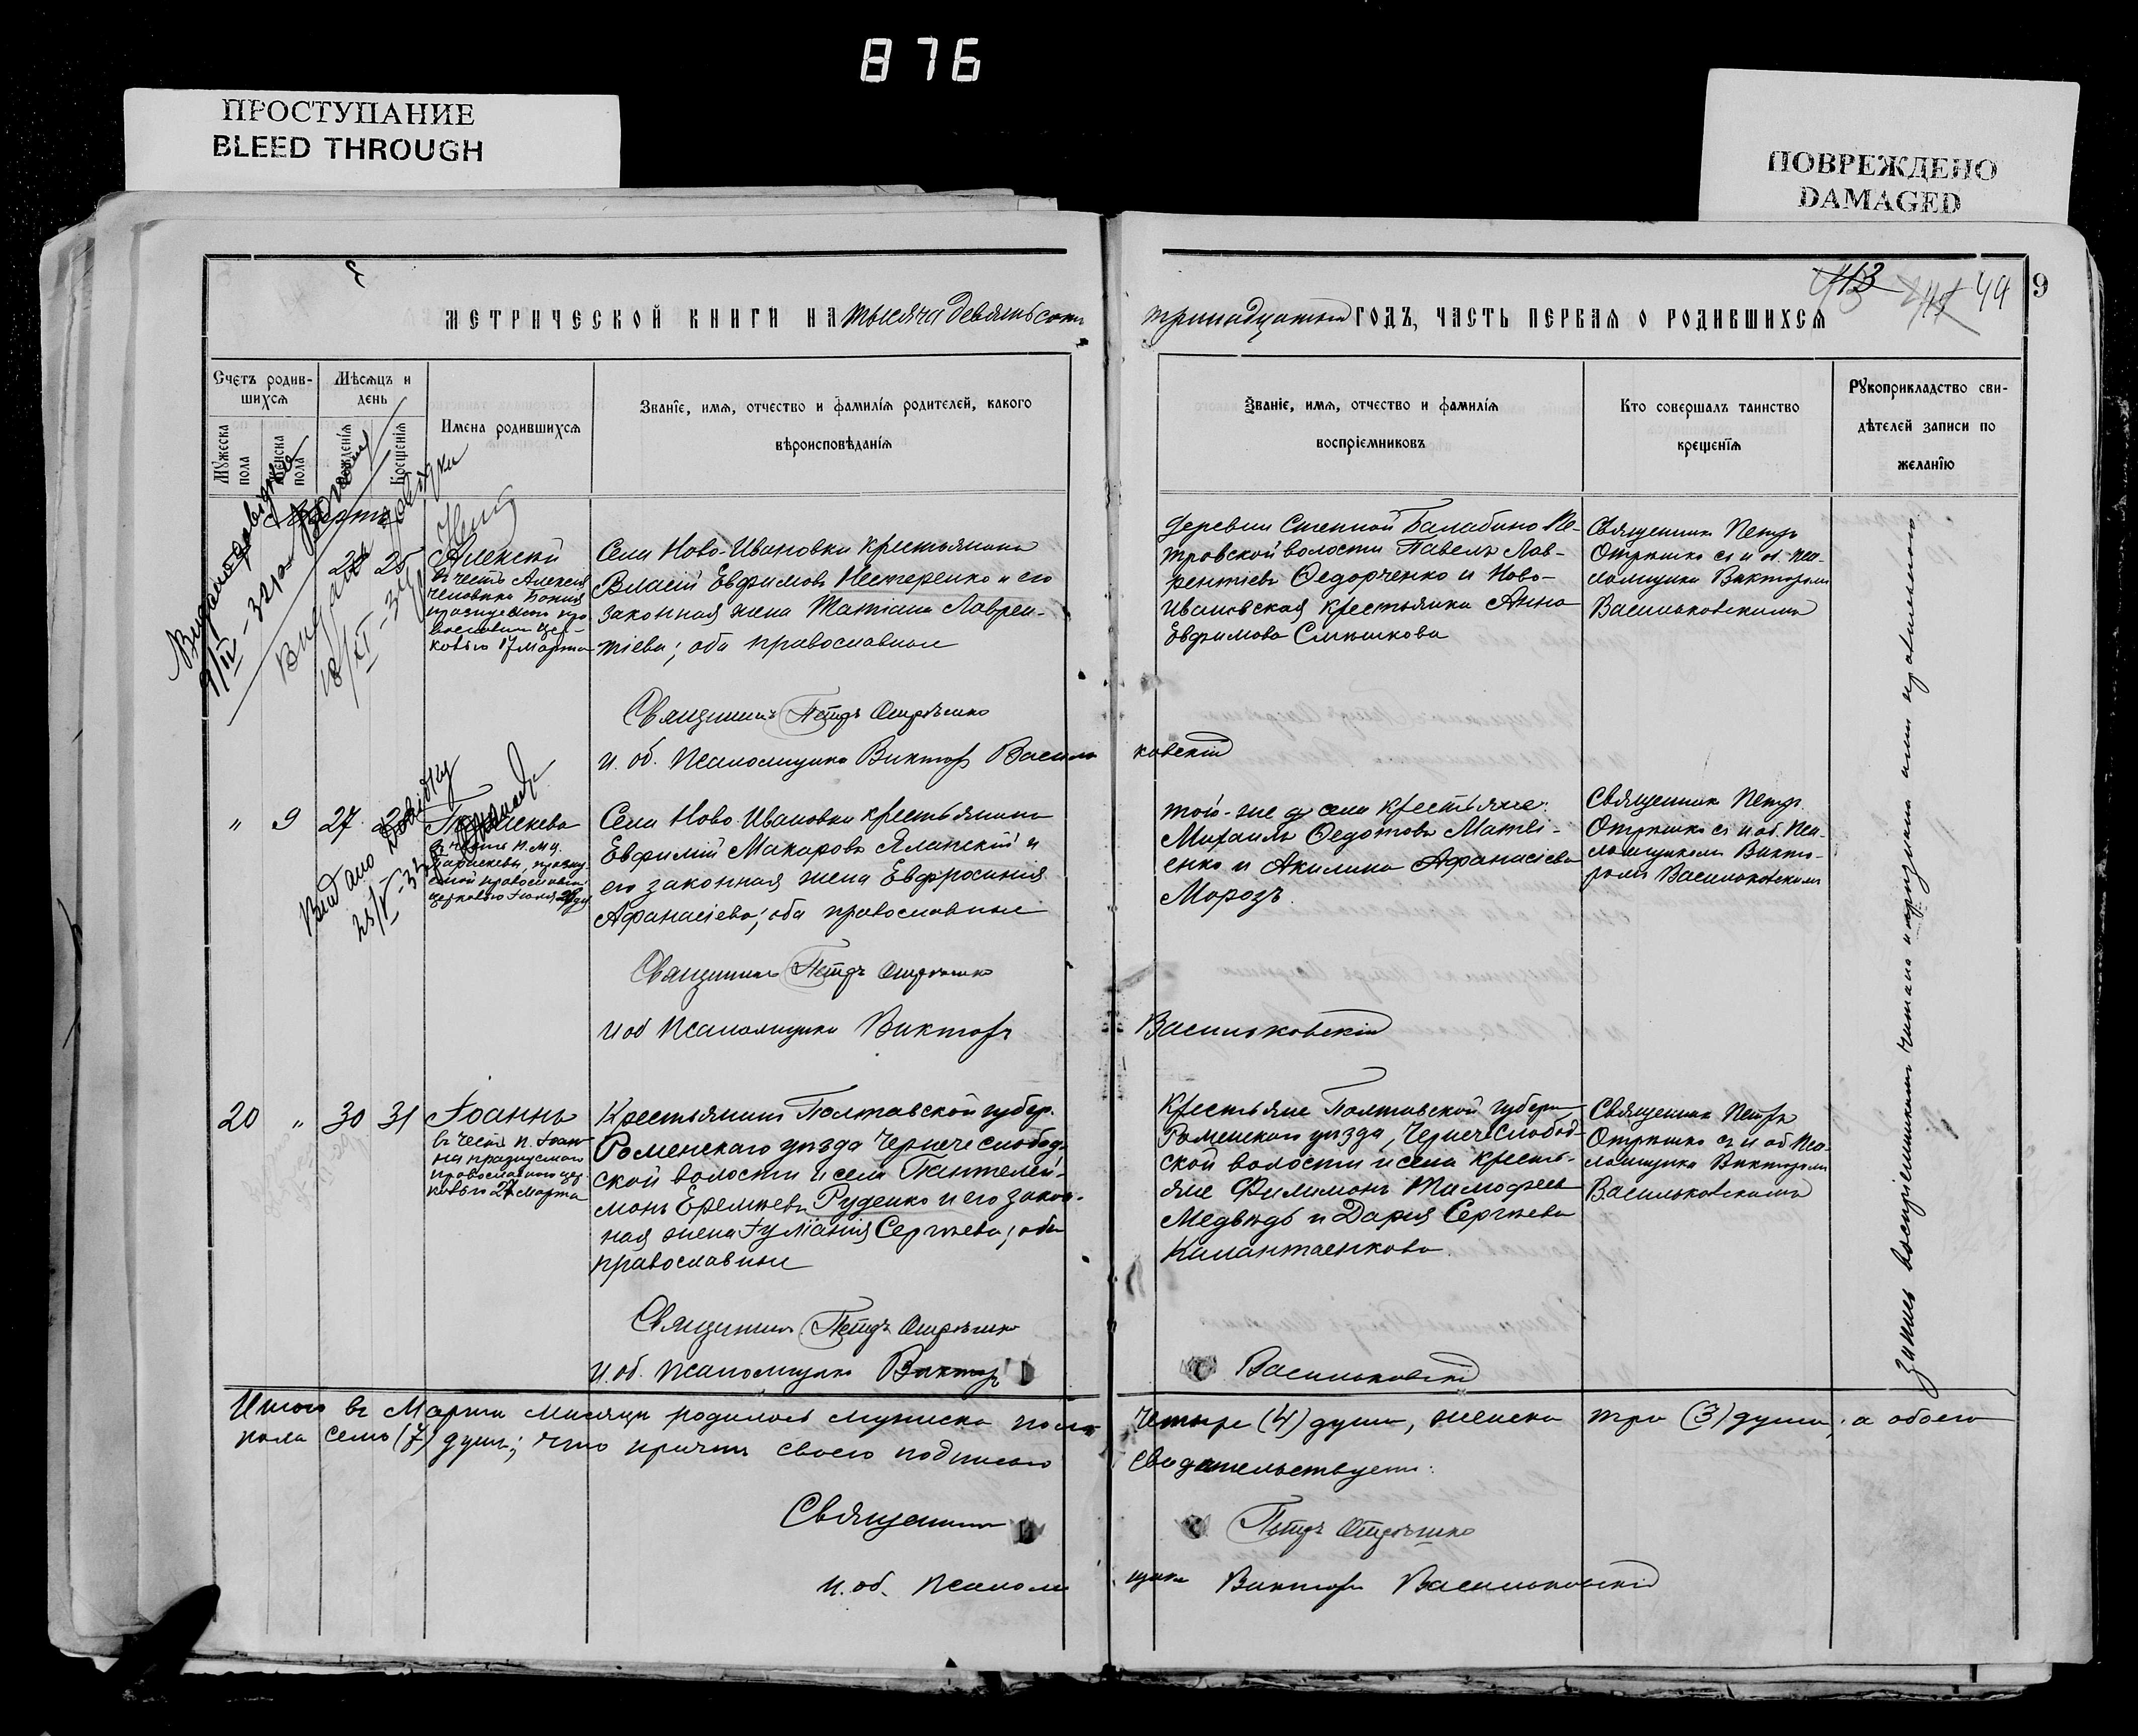 876
ПРОСТУПАНИЕ
BLEED THROUGH
ПОВРЕЖДЕНО
DAMAGED
113
44
9
МЕТРИЧЕСКОЙ КНИГИ НА тысяча девятьсотъ
тринадцатый ГОДЪ, ЧАСТЬ ПЕРВАЯ О РОДИВШИХСЯ
Счетъ родив-
шихся
Мужеска
пола
Женска
пола
Мѣсяцъ и
день
Рожденія
Крещенія
Имена родившихся
Званіе, имя, отчество и фамилія родителей, какого
вѣроисповѣданія
Званіе, имя, отчество и фамилія
воспріемниковъ
Кто совершалъ таинство
крещенія
Рукоприкладство сви-
дѣтелей записи по
желанію
Мартъ
24 25
Алексій
въ честь Алексія
человѣка Божія
празднуемаго пра
вославною цер-
ковью 17 Марта
Села Ново-Ивановки крестьянинъ
Власій Евфимовъ Нестеренко и его
законная жена Татіана Лаврен-
тіева; оба православные
Деревни Степной Балабино Пе-
тровской волости Павелъ Лав-
рентіевъ Федорченко и Ново-
Ивановская крестьянка Анна
Евфимова
Священникъ Петръ
съ и. об. пса-
ломщика Викторомъ
Васильковскимъ
Видано
18/XI - 34
Священникъ Петръ
и. об. псаломщика Викторъ Василь
ковскій
" 9 27
Параскева
въ честь п. м.ц.
Параскевы, праздну
емой православной
церковью
Села Ново-Ивановки крестьянинъ
Евфимій Макаровъ Ялапскій и
его законная жена Евфросинія
Афанасіева; оба православные
того-же села крестьяне:
Михаилъ Федотовъ Матві-
енко и Акилина Афанасіева
Морозъ.
Священникъ Петръ
съ и. об. пса-
ломщикомъ Викто-
ромъ Васильковскимъ
Видано Довідку
Священникъ Петръ
и об псаломщика Викторъ
Васильковскій
20 " 30 31
Іоаннъ
въ честь п. Іоан
на празднуемаго
православною цер
ковью 27 Марта
Крестьянинъ Полтавской губер.
Роменскаго уѣзда Чернечеслобод-
ской волости и села Пантелей-
монъ Еремѣевъ Руденко и его закон-
ная жена Іуліанія Сергѣева; оба
православные
Крестьяне Полтавской губерн.
Роменскаго уѣзда, Чернечеслобод-
ской волости и села крестья-
яне Филимонъ Тимофеевъ
Медвѣдь и Дарія Сергѣева
Калантаенкова.
Священникъ Петръ
съ и об пса-
ломщика Викторомъ
Васильковскимъ
Священникъ Петръ
и. об. псаломщика Викторъ
Васильковскій
Итого въ Мартѣ мѣсяцѣ родилось мужеска пола
четыре (4) души, женска три (3) души, а обоего
пола семь (7) душъ; что причтъ своею подписью
свидѣтельствуетъ:
Священникъ
Петръ
и. об. псалом
щика Викторъ Васильковскій
запись воспріемникамъ читана и признана ими правильною